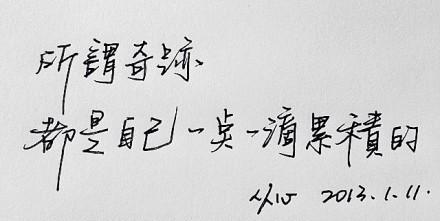 所謂奇跡
都是自己一点一滴累積的
2013.1.11.